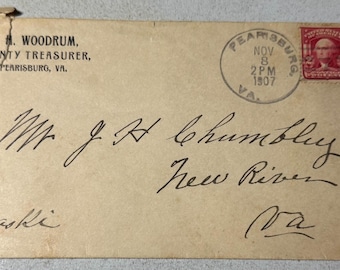 H. WOODRUM,
NTY TREASURER,
PEARISBURG, VA.
PEARISBURG,
NOV
8
2 PM
1907
VA.
Mr J H Chumbley
New River
Va
aski